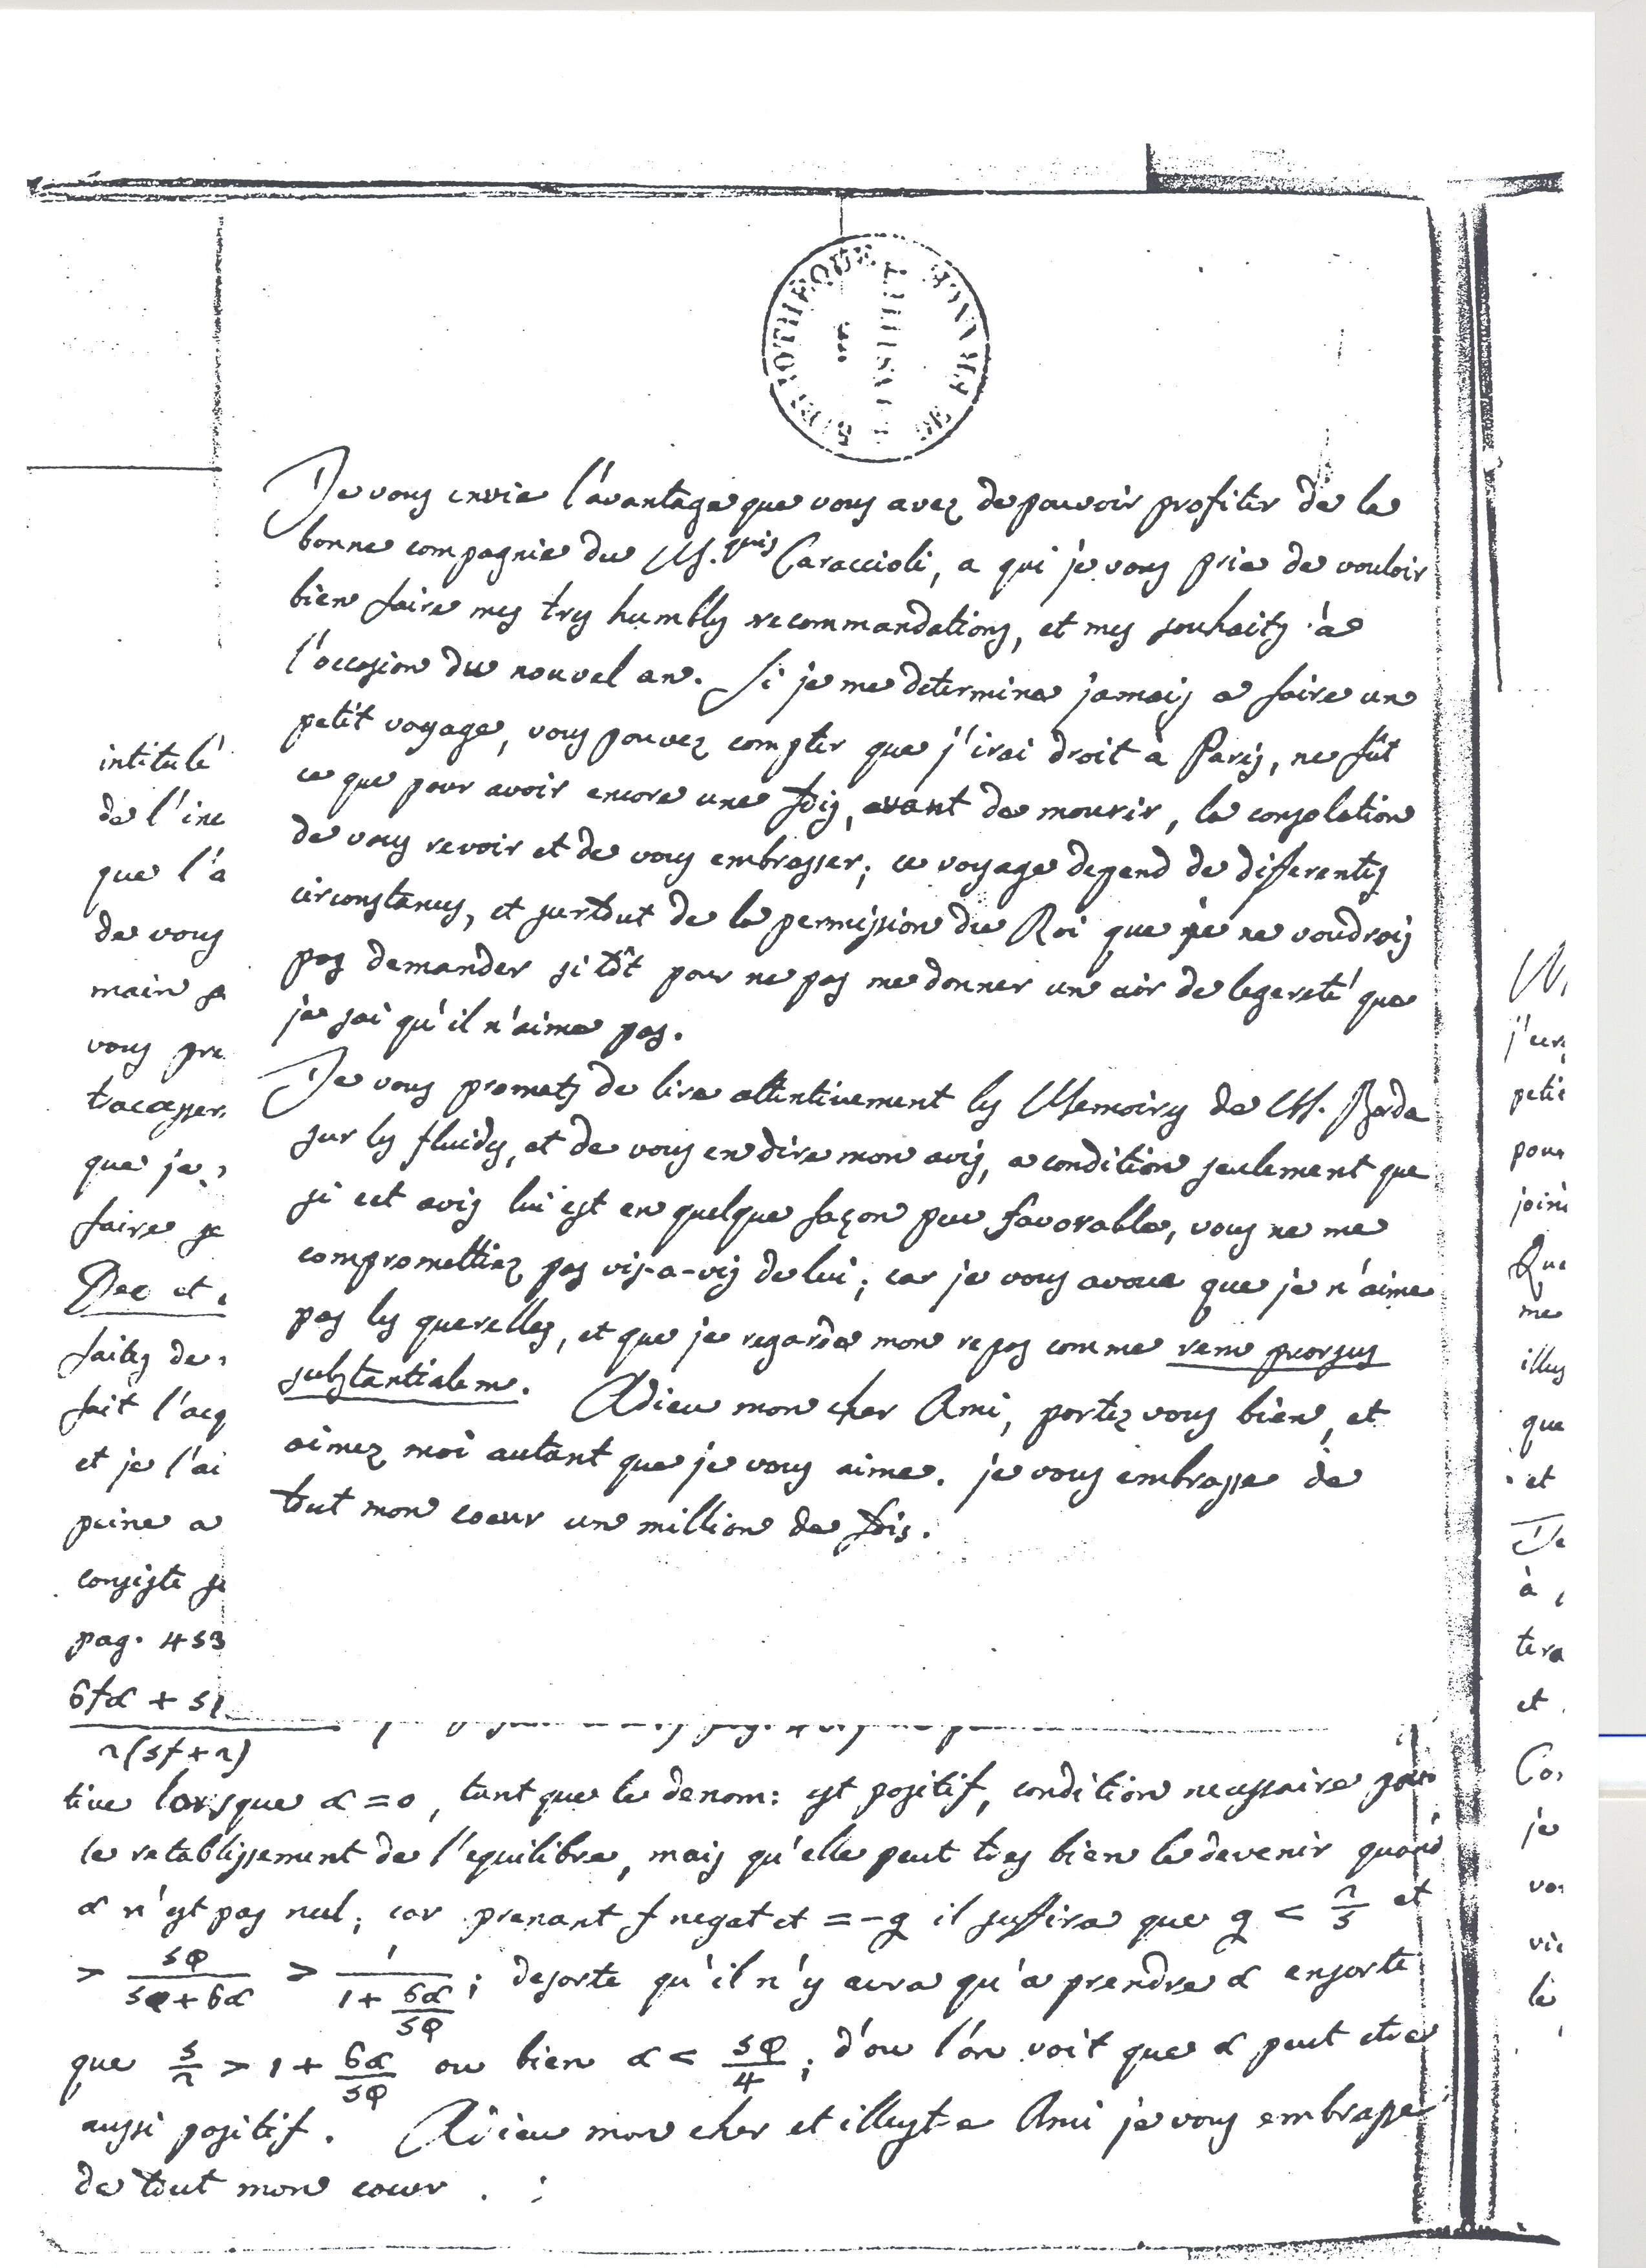 BIBLIOTHEQUE
DE L'INSTITUT
DE FRANCE
Je vous envie l'avantage que vous avez de pouvoir profiter de la
bonne compagnie du M.quis Caraccioli, a qui je vous prie de vouloir
bien faire mes tres humbles recommandations, et mes souhaits à
l'occasion du nouvel an. Si je me determine jamais a faire un
petit voyage, vous pouvez compter que j'irai droit à Paris, ne fût
ce que pour avoir encore une fois, avant de mourir, la consolation
de vous revoir et de vous embrasser; ce voyage depend de differentes
circonstances, et surtout de la permission du Roi que je ne voudrois
pas demander si tôt pour ne pas me donner un air de legereté que
je sai qu'il n'aime pas.
Je vous promets de lire attentivement les Memoires de M. Borda
sur les fluides, et de vous en dire mon avis, a condition seulement que
si cet avis lui est en quelque façon peu favorable, vous ne me
compromettiez pas vis-a-vis de lui; car je vous avoue que je n'aime
pas les querelles, et que je regarde mon repos comme rem prorsus
substantialem. Adieu mon cher Ami, portez vous bien, et
aimez moi autant que je vous aime. je vous embrasse de
tout mon coeur un million de fois.
intitulé
de l'ine
que l'a
de vous
main se
vous pre
tracasser
que je
faire se
Dec et
faites de
fait l'acq
et je l'ai
peine a
consiste se
pag. 453
6fα + 5
n(5f+n)
tive lorsque α = 0, tant que le denom: est positif, condition necessaire pour
le retablissement de l'equilibre, mais qu'elle peut tres bien le devenir quand
α n'est pas nul; car prenant f negat et = -g il suffira que g < n/5 et
> 5φ/(5φ+6α) > 1/(1+6α/5φ); desorte qu'il n'y aura qu'a prendre α ensorte
que 5/n > 1 + 6α/5φ ou bien α < 5φ/4; d'ou l'on voit que α peut etre
aussi positif. Adieu mon cher et illustre Ami je vous embrasse
de tout mon coeur.
petit
pour
joint
Que
me
illus
que
et
Je
à
tera
et
je
vie
le